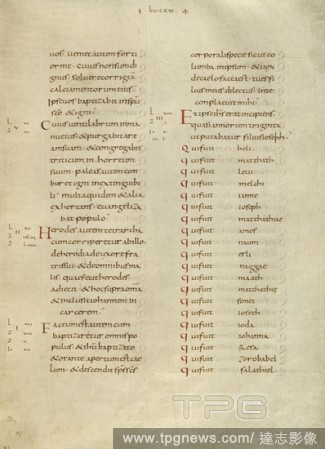 lucam
uos uenit autem forti
or me cuius non sum di
gnus soluere corrigia
calciamentorum eius
Ipse uos baptizabit in spu
sco & igni
Cuius uentilabrum in ma
nu eius & purgabit are
am suam & congregabit
triticum in horreum
suum paleas autem com
buret igni inextinguibi
li multa quidem & alia
exhortans euangeliza
bat populo
Herodes autem tetrarcha
cum corriperetur ab illo
de herodiade uxore fra
tris sui & de omnibus ma
lis quae fecit herodes
adiecit & hoc supra oma
& inclusit iohannem in
carcerem
Factum est autem cum
baptizaretur omnis po
pulus & ihu baptizato
& orante apertum est cae
lum & descendit sps scs
corporali specie sicut co
lumba in ipsum & uox
de caelo facta est tu es fi
lius meus dilectus in te
complacuit mihi
Et ipse ihs erat incipiens
quasi annorum triginta
ut putabatur filius ioseph
Qui fuit heli
qui fuit matthath
qui fuit leui
qui fuit melchi
qui fuit ianne
qui fuit ioseph
qui fuit matthathiae
qui fuit amos
qui fuit naum
qui fuit esli
qui fuit naggae
qui fuit maath
qui fuit matthathiae
qui fuit semei
qui fuit iosech
qui fuit ioda
qui fuit iohanna
qui fuit resa
qui fuit zorobabel
qui fuit salathiel
TPG
www.tpgnews.com / 達志影像